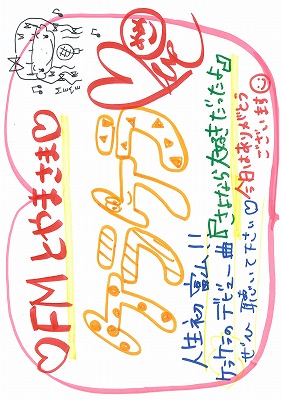 ♡FMとやまさま♡
ケラケラ
人生初 富山!!
ケラケラのデビュー曲『さよなら大好きだったよ』
ぜひ聴いて下さい♡
今日はありがとう
ございます